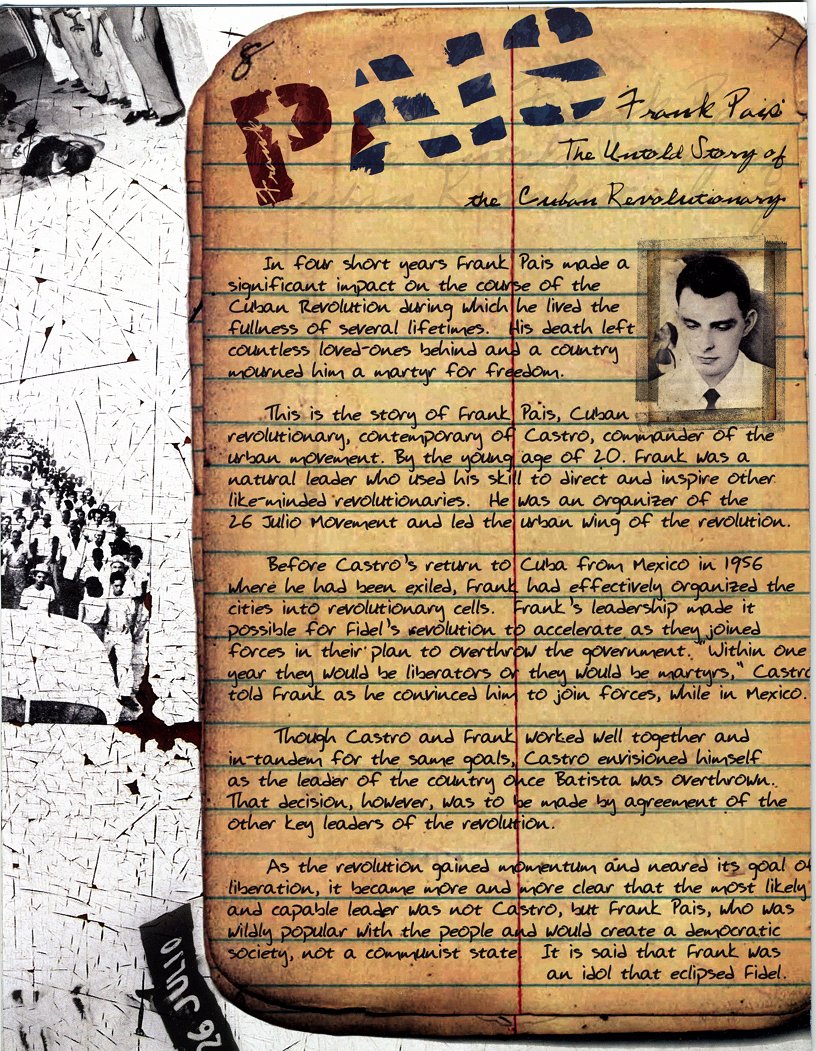 8
PAIS
Frank
Frank Pais
The Untold Story of
the Cuban Revolutionary
In four short years Frank Pais made a
significant impact on the course of the
Cuban Revolution during which he lived the
fullness of several lifetimes. His death left
countless loved-ones behind and a country
mourned him a martyr for freedom.
This is the story of Frank Pais, Cuban
revolutionary, contemporary of Castro, commander of the
urban movement. By the young age of 20. Frank was a
natural leader who used his skill to direct and inspire other
like-minded revolutionaries. He was an organizer of the
26 Julio Movement and led the urban wing of the revolution.
Before Castro's return to Cuba from Mexico in 1956
where he had been exiled, Frank had effectively organized the
cities into revolutionary cells. Frank's leadership made it
possible for Fidel's revolution to accelerate as they joined
forces in their plan to overthrow the government. "Within one
year they would be liberators or they would be martyrs," Castro
told Frank as he convinced him to join forces, while in Mexico.
Though Castro and Frank worked well together and
in-tandem for the same goals, Castro envisioned himself
as the leader of the country once Batista was overthrown.
That decision, however, was to be made by agreement of the
other key leaders of the revolution.
As the revolution gained momentum and neared its goal of
liberation, it became more and more clear that the most likely
and capable leader was not Castro, but Frank Pais, who was
wildly popular with the people and would create a democratic
society, not a communist state. It is said that Frank was
an idol that eclipsed Fidel.
26 JULIO